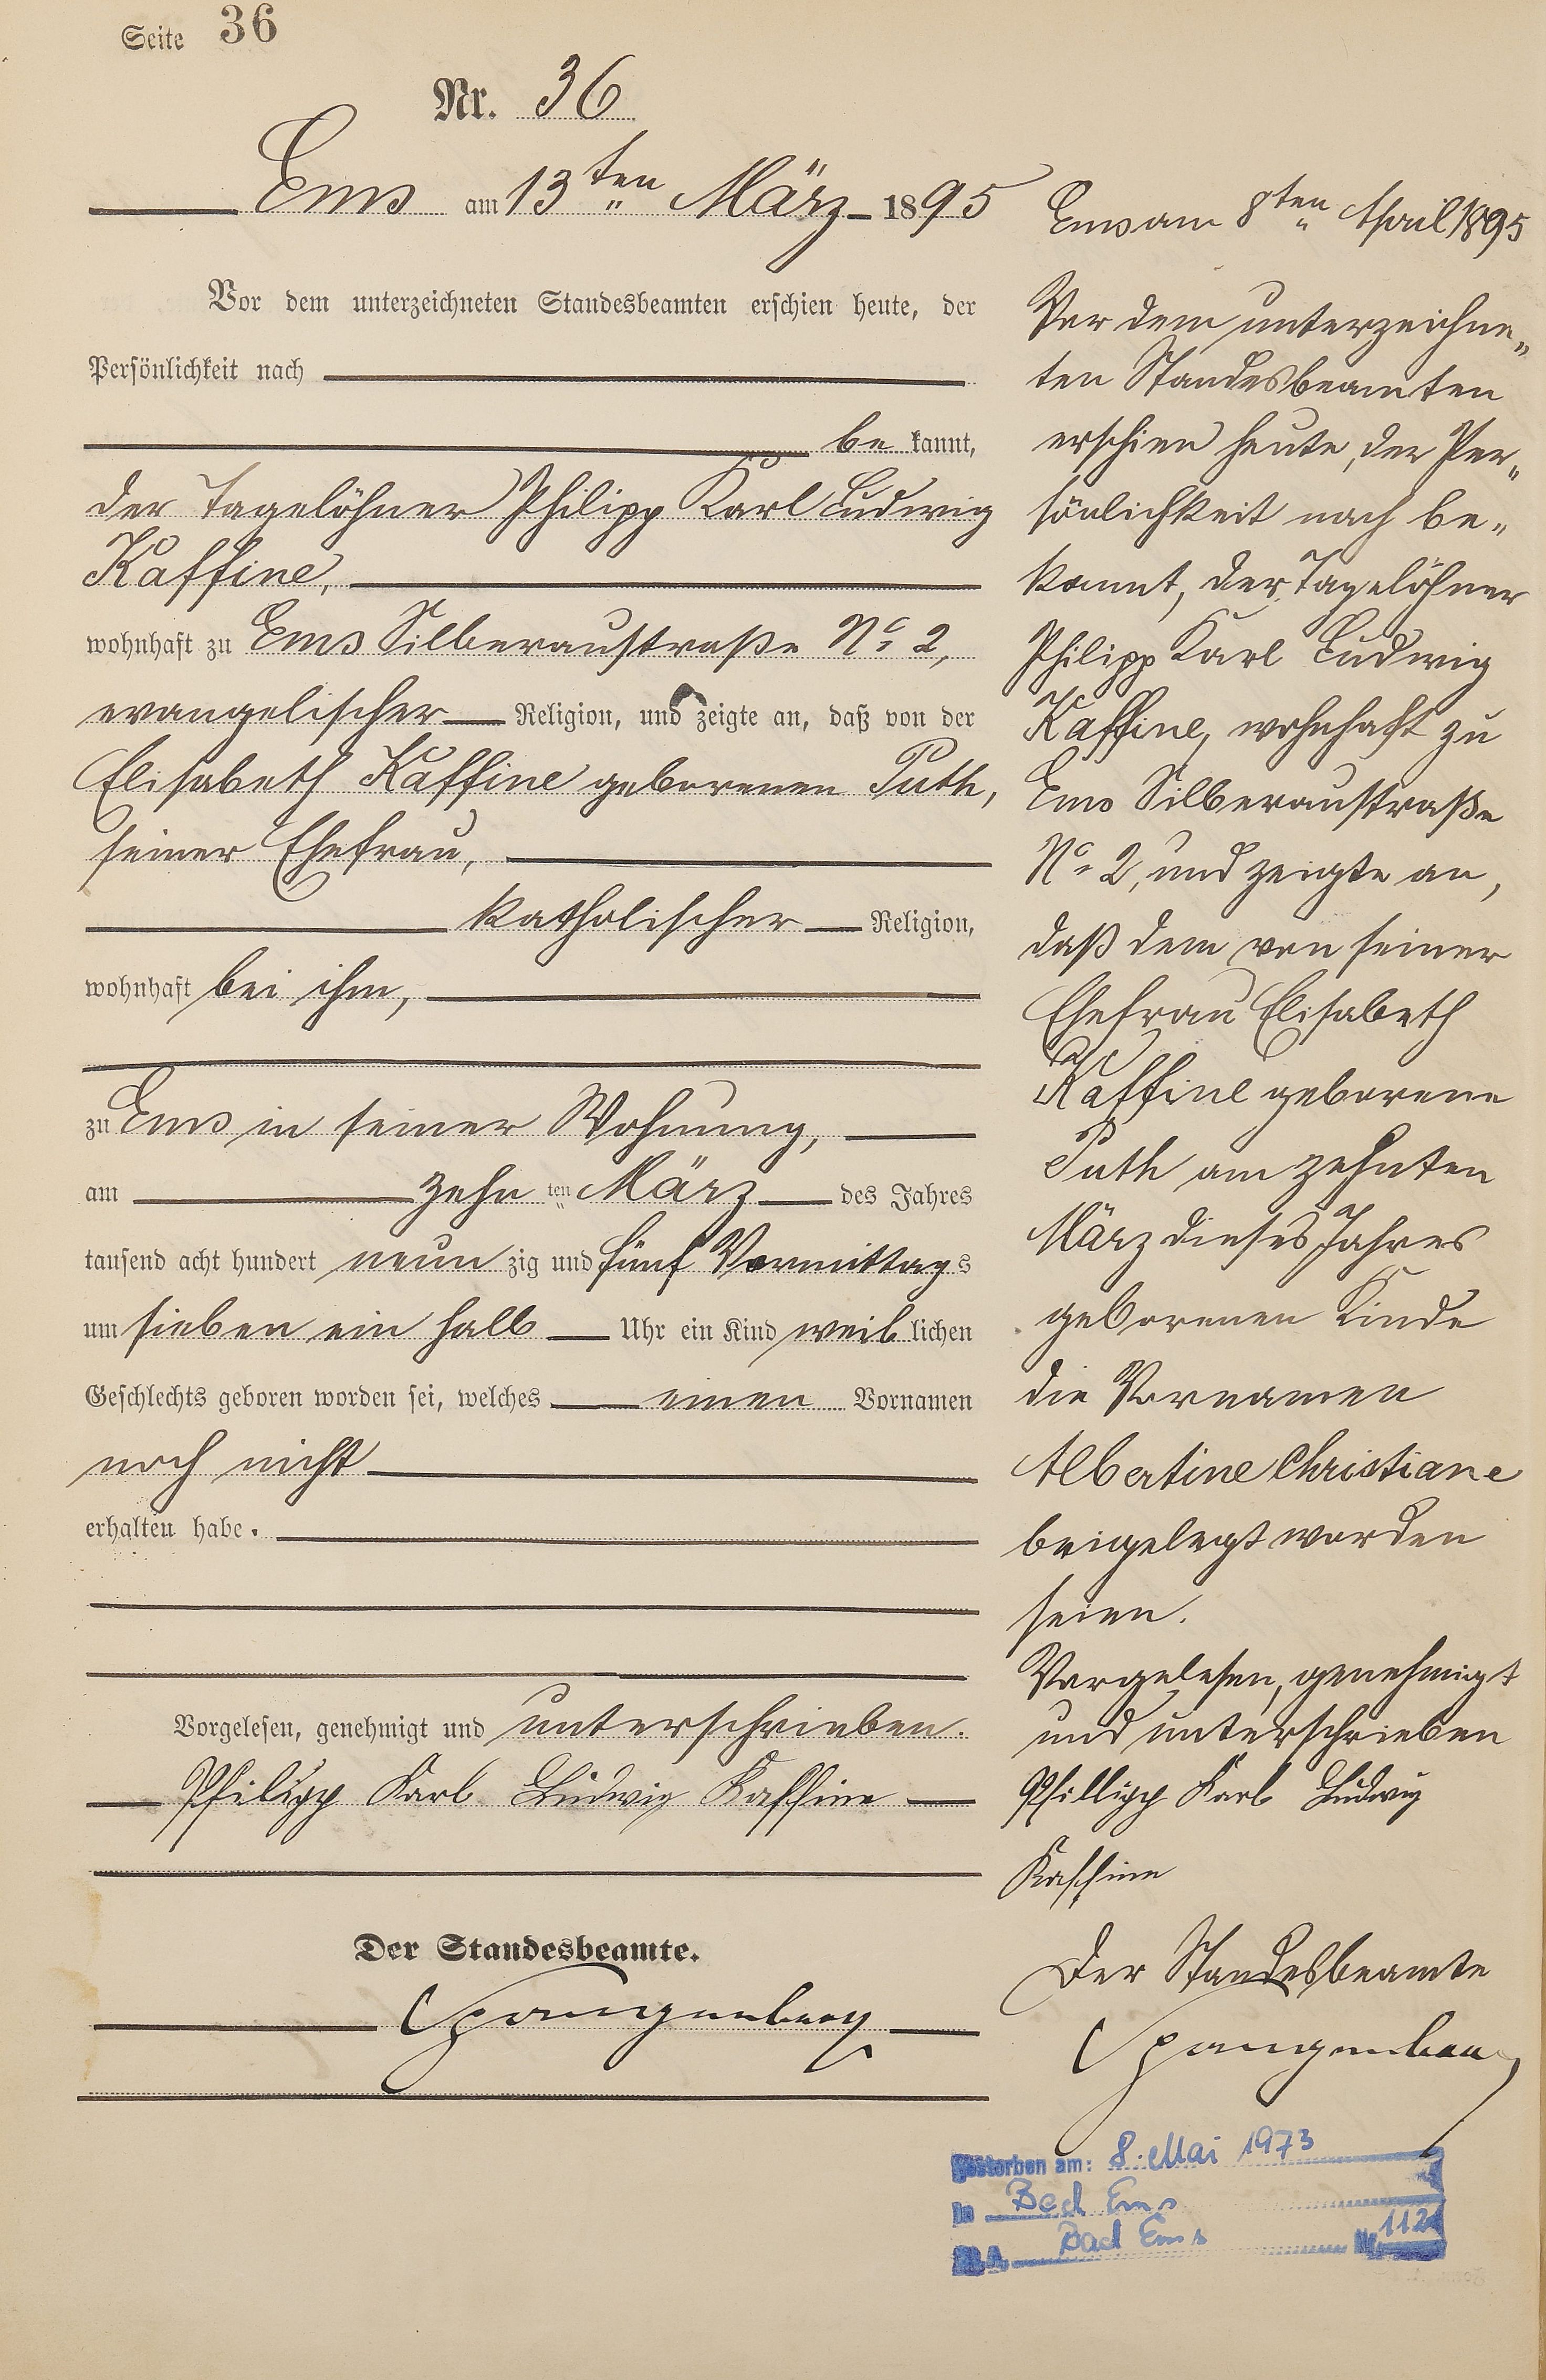 Seite 36
Nr. 36
Ems am 13ten März 1895
Vor dem unterzeichneten Standesbeamten erschien heute, der
Persönlichkeit nach
be kannt,
der Tagelöhner Philipp Karl Ludwig
Kaffine,
wohnhaft zu Ems Silberaustraße No 2,
evangelischer Religion, und zeigte an, daß von der
Elisabeth Kaffine geborenen Puth,
seiner Ehefrau,
katholischer Religion,
wohnhaft bei ihm,
zu Ems in seiner Wohnung,
am zehn ten März des Jahres
tausend acht hundert neun zig und fünf Vormittags
um sieben ein halb Uhr ein Kind weib lichen
Geschlechts geboren worden sei, welches einen Vornamen
noch nicht
erhalten habe.
Vorgelesen, genehmigt und unterschrieben.
Philipp Karl Ludwig Kaffine
Der Standesbeamte.
Spangenberg
Ems am 8ten April 1895
Vor dem unterzeichne„
ten Standesbeamten
erschien heute, der Per„
sönlichkeit nach be„
kannt, der Tagelöhner
Philipp Karl Ludwig
Kaffine, wohnhaft zu
Ems Silberaustraße
No 2, und zeigte an,
daß dem von seiner
Ehefrau Elisabeth
Kaffine geborene
Puth am zehnten
März dieses Jahres
geborenen Kinde
die Vornamen
Albertine Christiane
beigelegt worden
seien.
Vorgelesen, genehmigt
und unterschrieben
Phillipp Karl Ludwig
Kaffine
Der Standesbeamte
Spangenberg
Gestorben am: 8. Mai 1973
in Bad Ems
Bad Ems Nr. 112